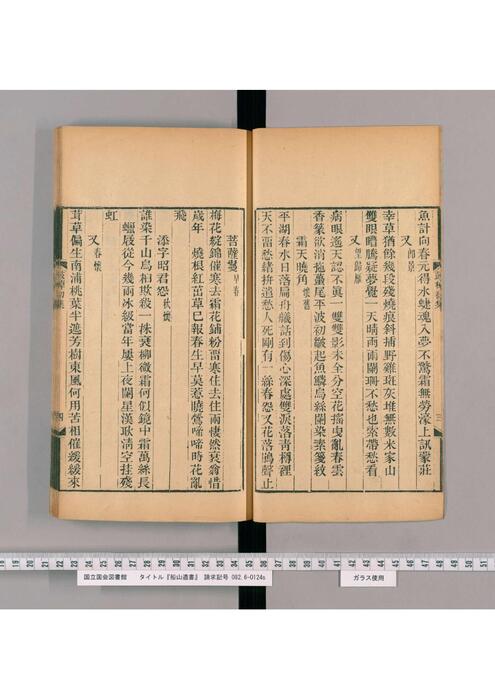 魚計向春元得水蜨魂入夢不驚霜無勞濠上訊蒙莊
又 即景
幸草猶餘幾段殘燒痕斜捕野雞斑灰堆無數米家山
雙眼瞢騰疑夢覺一天晴雨雨闌珊不愁也索帶愁看
又 望歸雁
病眼遙天認不眞一雙雙影未全分空花搖曳亂春雲
香篆欲消拖蠆尾平波初皺起魚鱗烏絲闌染素箋紋
霜天曉角 懷舊
平湖春水日落扁舟艤話到傷心深處雙淚落靑樽裡
天不畱愁緖拚逍愁人死剛有一絲春怨又花落鵑聲止
菩薩蠻 早春
梅花綻錦催寒去霜花鋪粉畱寒住去住兩棲然衰翁惜
歲年 燒根紅茁草已報春生早莫惹曉鶯啼啼時花亂
飛
添字昭君怨 秋懷
誰染千山烏桕欺殺一株衰柳微霜何似鏡中霜萬絲長
蠟屐從今幾兩冰級當年屢上夜闌星漢耿淸空挂殘
虹
又 春懷
茸草偏生南浦桃葉半遮芳樹東風何用苦相催緩緩來
三
四
国立国会図書館 タイトル『船山遺書』 請求記号 082.6-0124s
ガラス使用